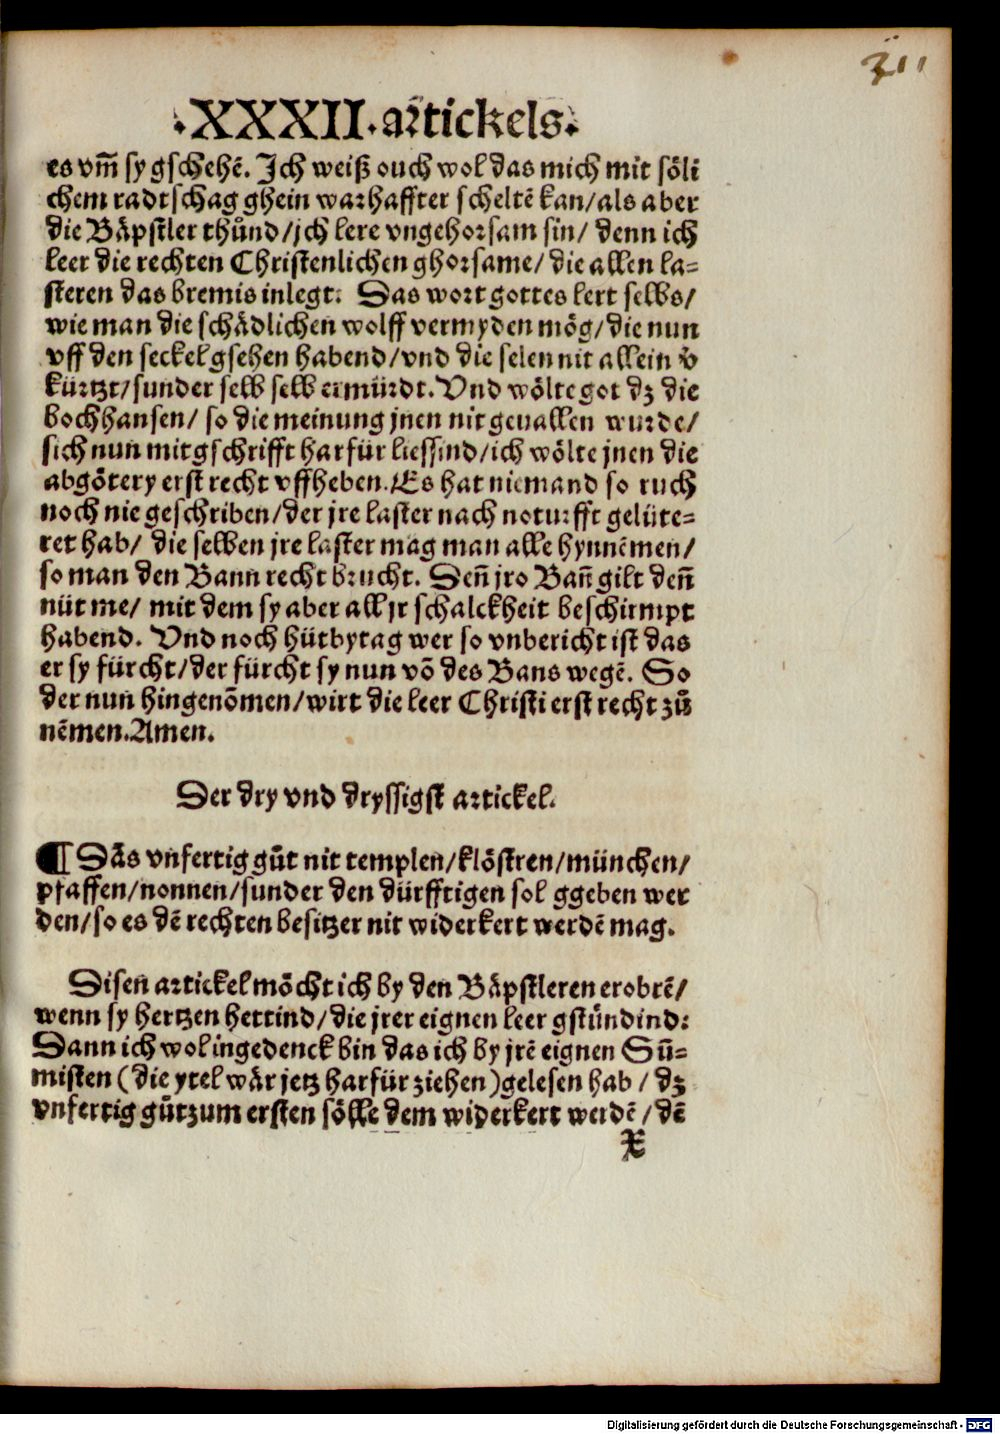 ·XXXII·artickels·
es vm̄ sy gschehē. Ich weiß ouch wol das mich mit söli
chem radtschag ghein warhaffter scheltē kan/als aber
die Bäpstler thůnd/jch lere vngehorsam sin/ denn ich
leer die rechten Christenlichen ghorsame/ die allen la=
steren das bremis inlegt. Das wort gottes lert selbs/
wie man die schädlichen wolff vermyden mög/die nun
vff den seckel gsehen habend/vnd die selen nit allein v̄
kürtzt/sunder selb selb ermürdt. Vnd wölte got dz die
bochhansen/ so die meinung jnen nit geuallen wurde/
sich nun mit gschrifft harfür liessind/ich wölte jnen die
abgötery erst recht vffheben. Es hat niemand so ruch
noch nie geschriben/der jre laster nach noturfft gelüte=
ret hab/ die selben jre laster mag man alle hynnēmen/
so man den Bann recht brucht. Den̄ jro Ban̄ gilt den̄
nüt me/ mit dem sy aber all jr schalckheit beschirmpt
habend. Vnd noch hütbytag wer so vnbericht ist das
er sy fürcht/der fürcht sy nun vō des Bans wegē. So
der nun hingenōmen/wirt die leer Christi erst recht zů
nēmen. Amen.
Der dry vnd dryssigst artickel.
¶ Das vnfertig gůt nit templen/klöstren/münchen/
pfaffen/nonnen/sunder den dürfftigen sol ggeben wer
den/so es dē rechten besitzer nit widerkert werdē mag.
Disen artickel möcht ich by den Bäpstleren erobrē/
wenn sy hertzen hettind/die jrer eignen leer gstündind:
Dann ich wol ingedenck bin das ich by jrē eignen Sū=
misten (die ytel wär jetz harfür ziehen) gelesen hab / dz
vnfertig gůt zum ersten sölle dem widerkert werdē/dē
X
Digitalisierung gefördert durch die Deutsche Forschungsgemeinschaft - DFG